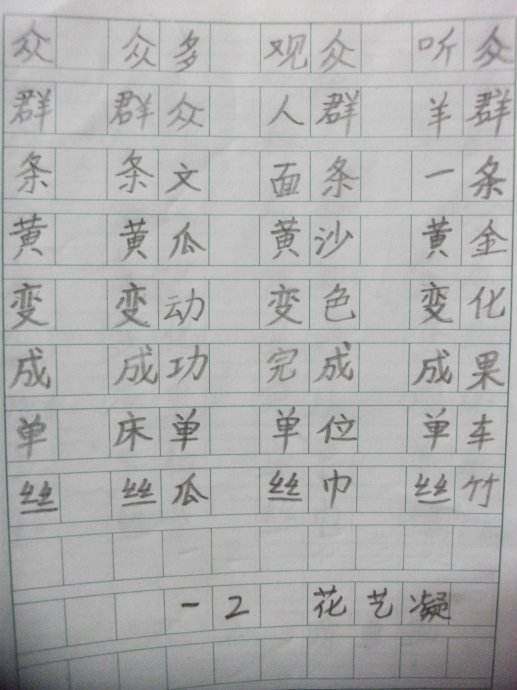 众 众多 观众 听众
群 群众 人群 羊群
条 条文 面条 一条
黄 黄瓜 黄沙 黄金
变 变动 变色 变化
成 成功 完成 成果
单 床单 单位 单车
丝 丝瓜 丝巾 丝竹
一2 花艺凝